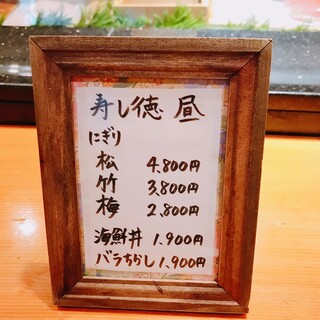 寿し徳 昼
にぎり
松 4.800円
竹 3.800円
梅 2.800円
海鮮丼 1.900円
バラちらし 1.900円